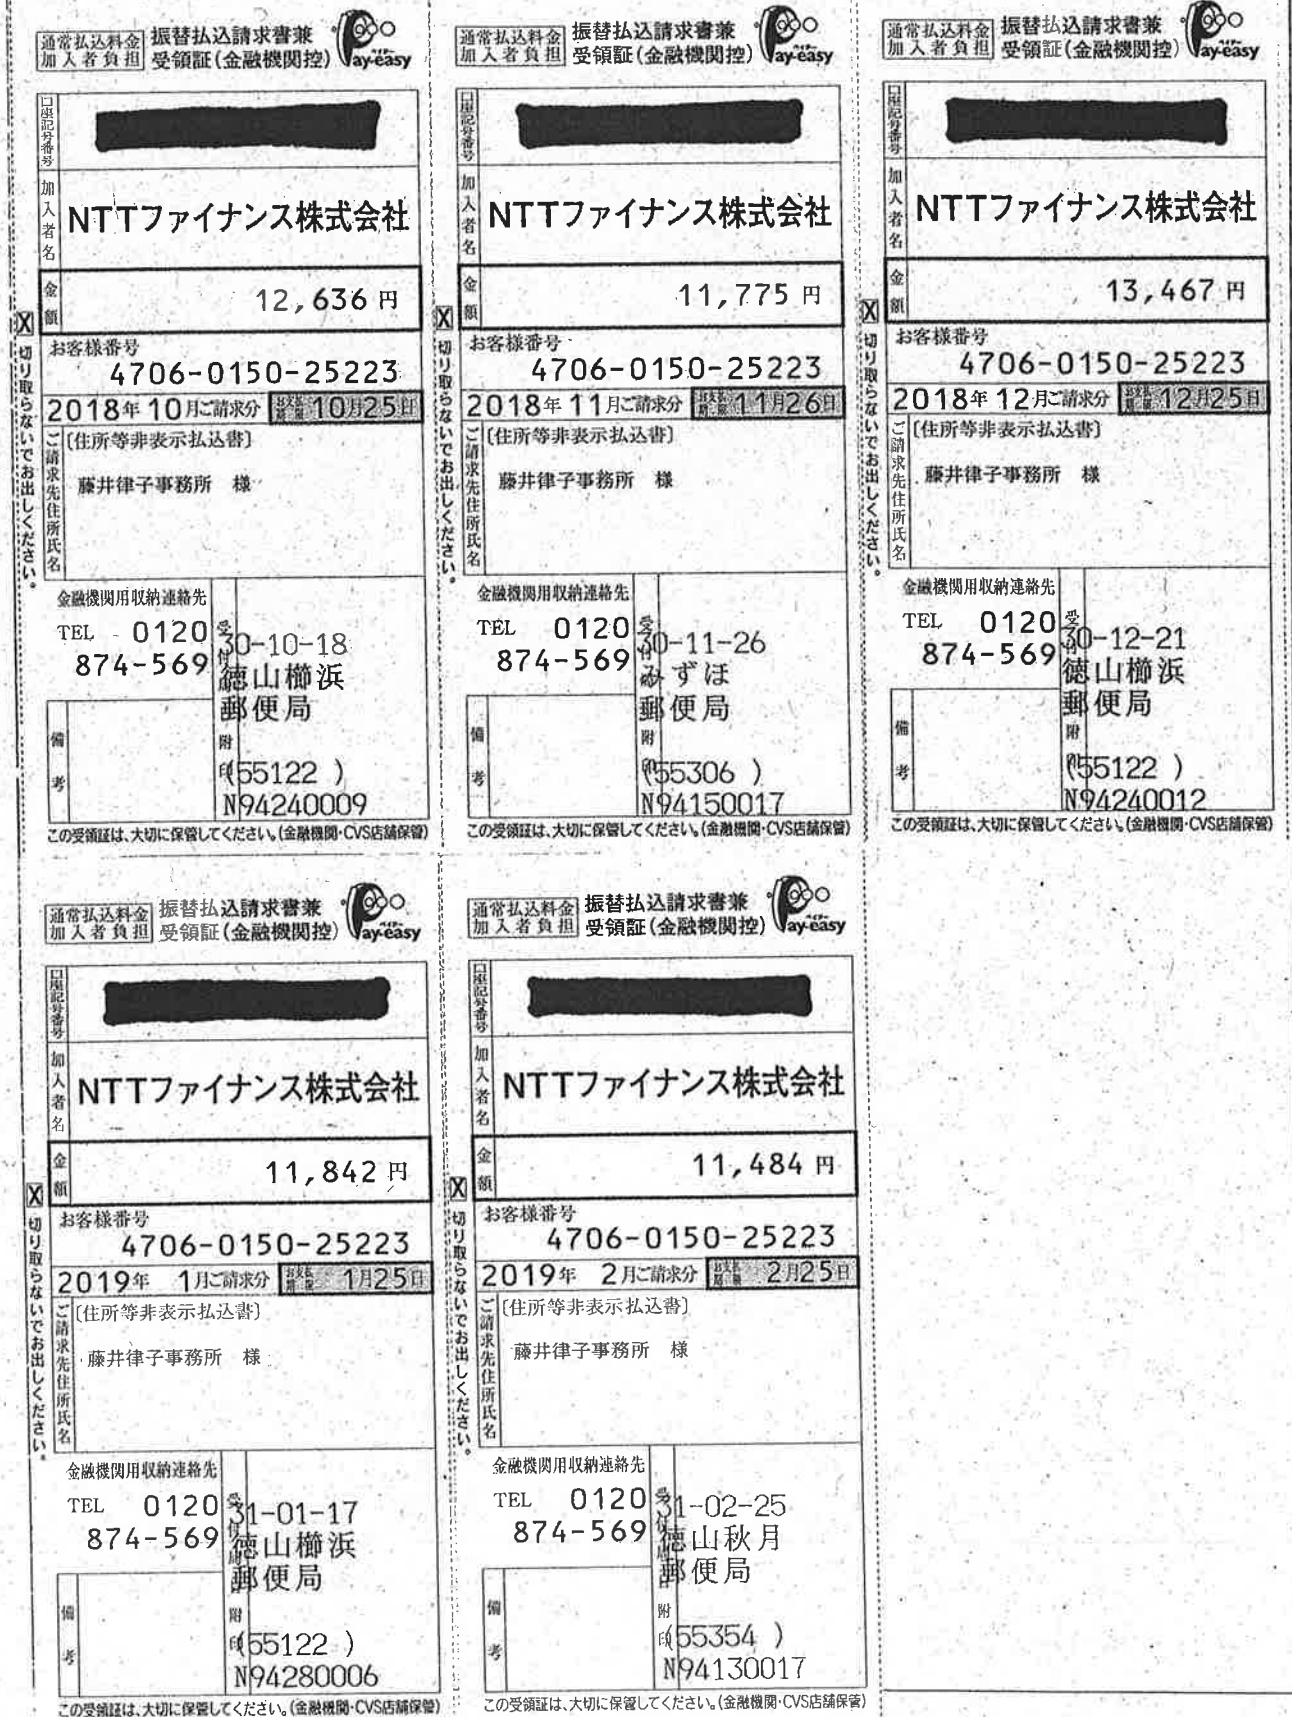 通常払込料金
加入者負担
振替払込請求書兼
受領証(金融機関控)
ペイジー
Pay-easy
口座記号番号
加入者名
NTTファイナンス株式会社
金額
12,636 円
お客様番号
4706-0150-25223
2018年 10月ご請求分 お支払期限 10月25日
ご請求先住所氏名
〔住所等非表示払込書〕
藤井律子事務所 様
金融機関用収納連絡先
TEL 0120
874-569
受付
30-10-18
徳山櫛浜
郵便局
附
印
(55122 )
N94240009
備考
この受領証は、大切に保管してください。(金融機関・CVS店舗保管)
X 切り取らないでお出しください。
通常払込料金
加入者負担
振替払込請求書兼
受領証(金融機関控)
ペイジー
Pay-easy
口座記号番号
加入者名
NTTファイナンス株式会社
金額
11,775 円
お客様番号
4706-0150-25223
2018年 11月ご請求分 お支払期限 11月26日
ご請求先住所氏名
〔住所等非表示払込書〕
藤井律子事務所 様
金融機関用収納連絡先
TEL 0120
874-569
受
30-11-26
みずほ
郵便局
附
(55306 )
N94150017
備考
この受領証は、大切に保管してください。(金融機関・CVS店舗保管)
X 切り取らないでお出しください。
通常払込料金
加入者負担
振替払込請求書兼
受領証(金融機関控)
ペイジー
Pay-easy
口座記号番号
加入者名
NTTファイナンス株式会社
金額
13,467 円
お客様番号
4706-0150-25223
2018年 12月ご請求分 お支払期限 12月25日
ご請求先住所氏名
〔住所等非表示払込書〕
藤井律子事務所 様
金融機関用収納連絡先
TEL 0120
874-569
受付
30-12-21
徳山櫛浜
郵便局
附
(55122 )
N94240012
備考
この受領証は、大切に保管してください。(金融機関・CVS店舗保管)
X 切り取らないでお出しください。
通常払込料金
加入者負担
振替払込請求書兼
受領証(金融機関控)
ペイジー
Pay-easy
口座記号番号
加入者名
NTTファイナンス株式会社
金額
11,842 円
お客様番号
4706-0150-25223
2019年 1月ご請求分 お支払期限 1月25日
ご請求先住所氏名
〔住所等非表示払込書〕
藤井律子事務所 様
金融機関用収納連絡先
TEL 0120
874-569
受付
31-01-17
徳山櫛浜
郵便局
附
印
(55122 )
N94280006
備考
この受領証は、大切に保管してください。(金融機関・CVS店舗保管)
X 切り取らないでお出しください。
通常払込料金
加入者負担
振替払込請求書兼
受領証(金融機関控)
ペイジー
Pay-easy
口座記号番号
加入者名
NTTファイナンス株式会社
金額
11,484 円
お客様番号
4706-0150-25223
2019年 2月ご請求分 お支払期限 2月25日
ご請求先住所氏名
〔住所等非表示払込書〕
藤井律子事務所 様
金融機関用収納連絡先
TEL 0120
874-569
受付
31-02-25
徳山秋月
郵便局
附
印
(55354 )
N94130017
備考
この受領証は、大切に保管してください。(金融機関・CVS店舗保管)
X 切り取らないでお出しください。